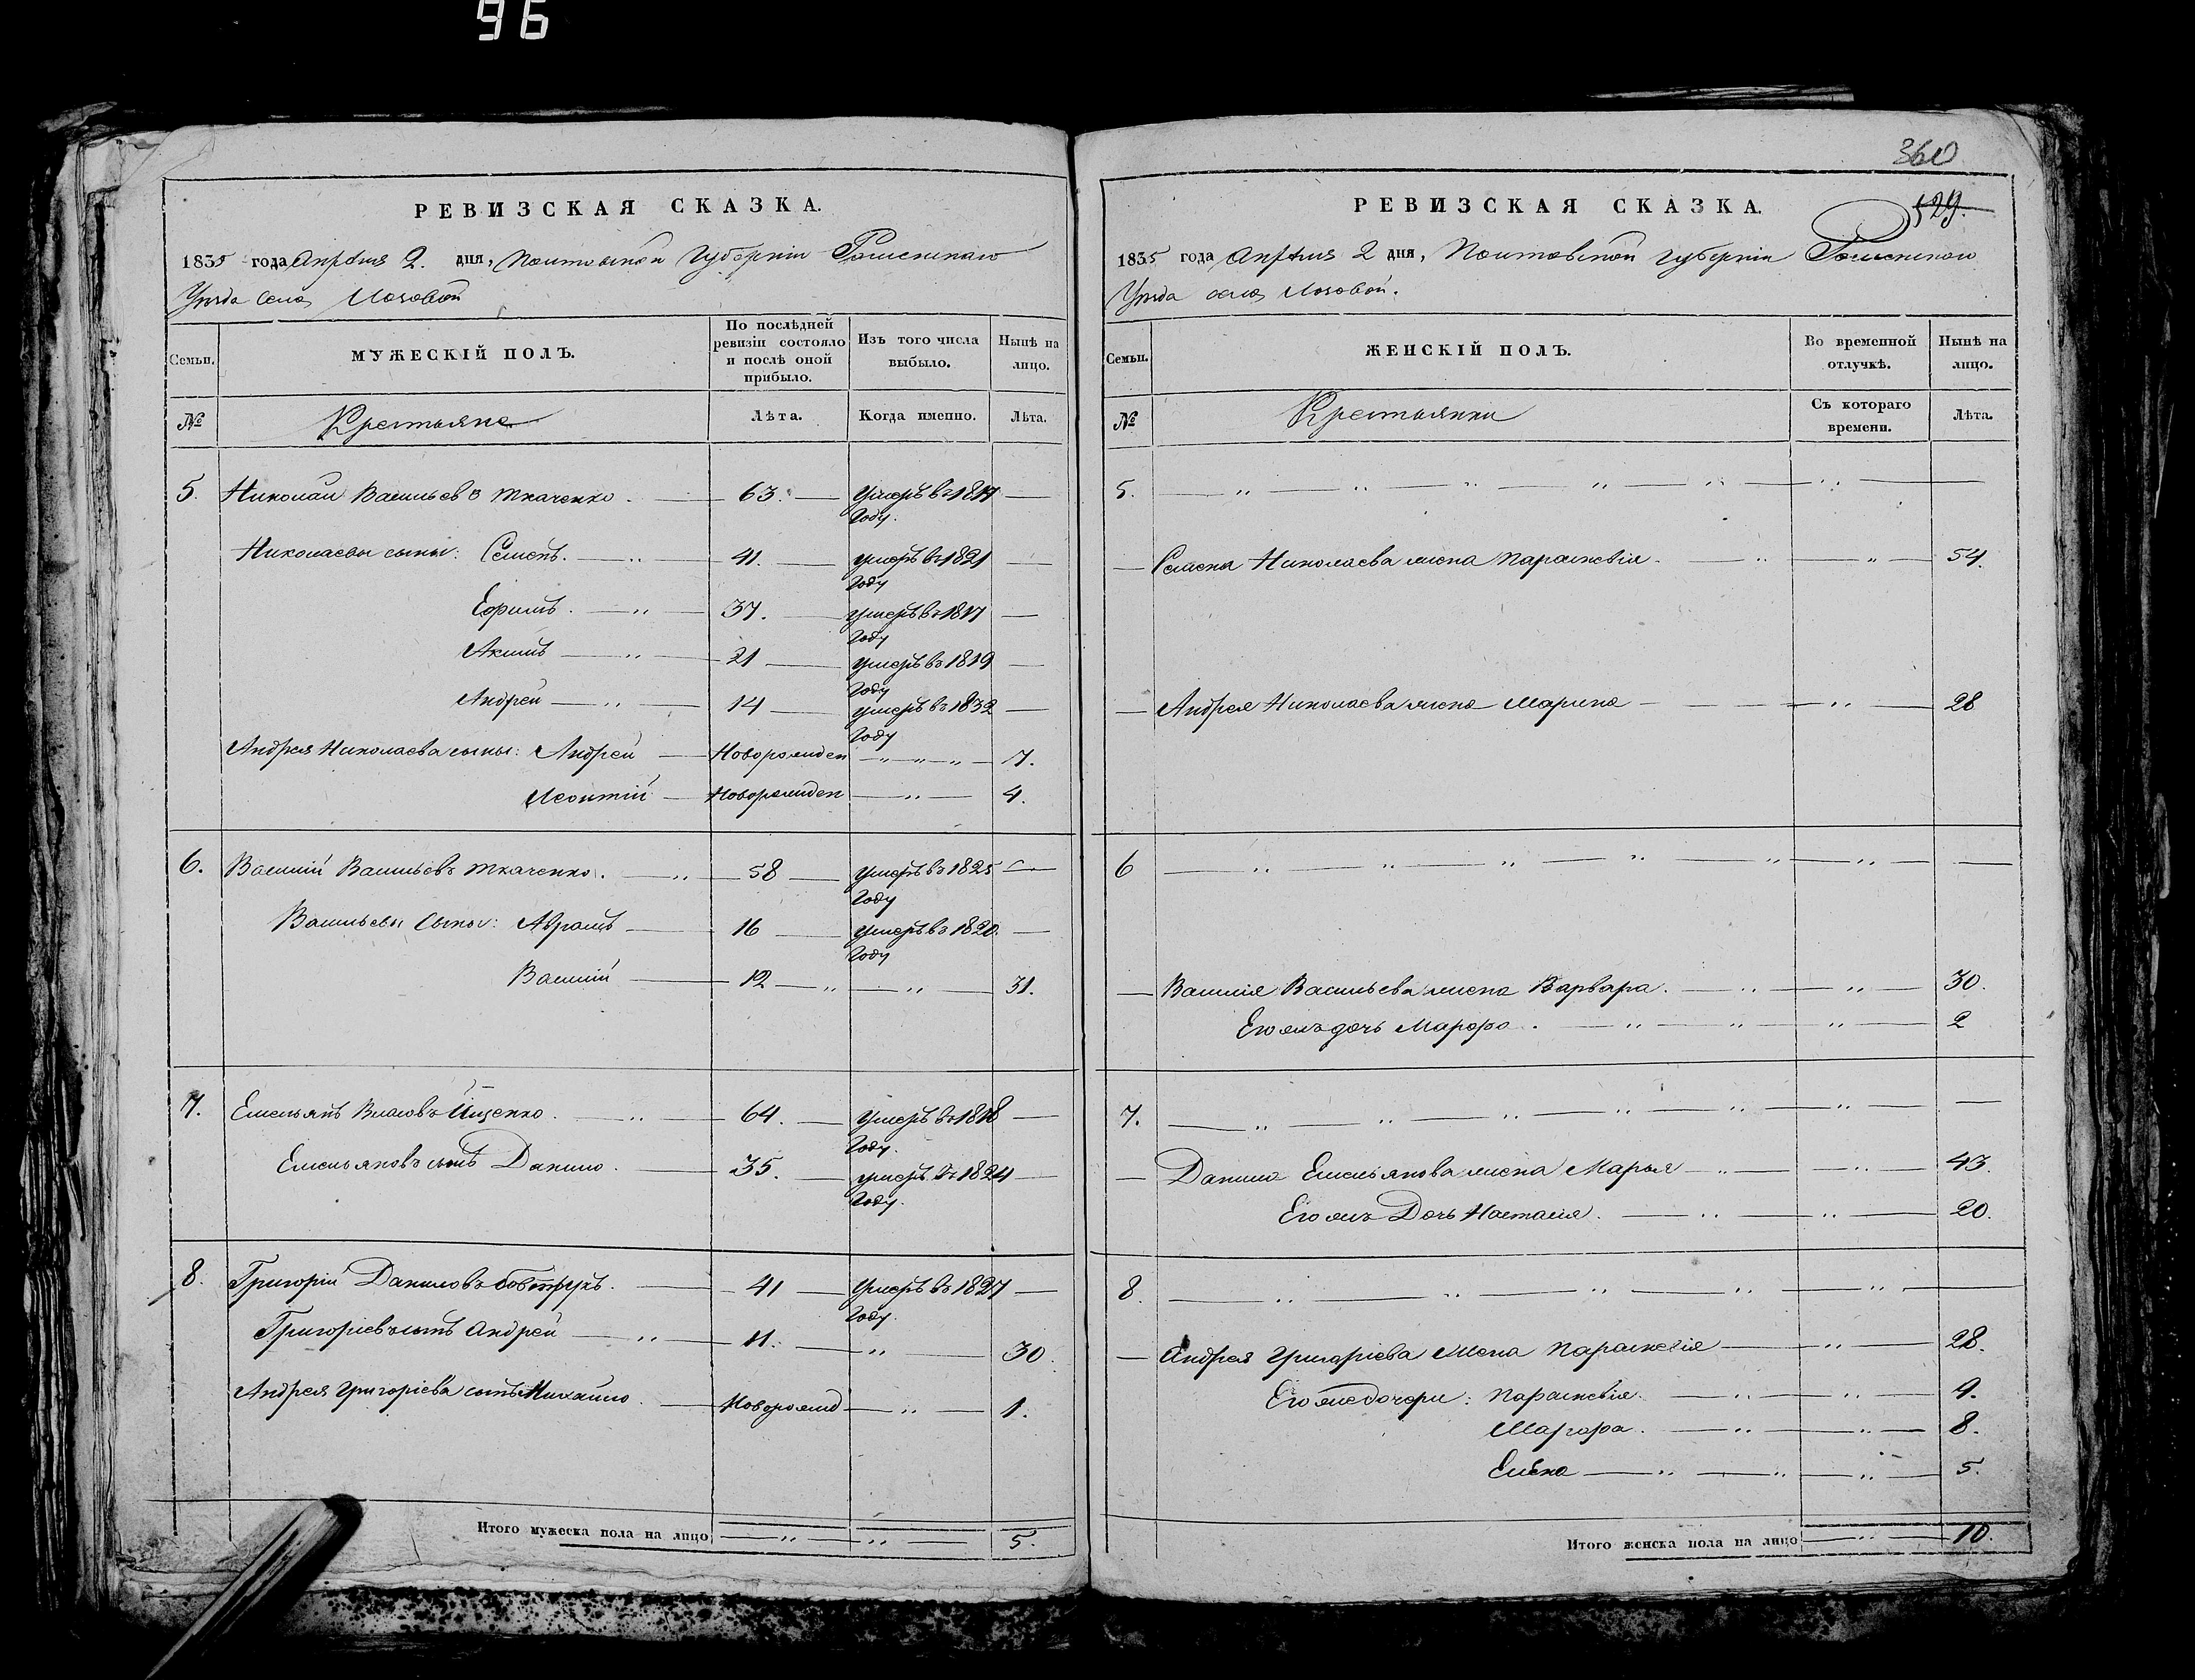 96
360
529.
РЕВИЗСКАЯ СКАЗКА.
1835 года Апрѣля 2. дня, Полтавской Губерніи Роменскаго
Уѣзда села Лозовой
Семьи.
МУЖЕСКІЙ ПОЛЪ.
По послѣдней ревизіи состояло и послѣ оной прибыло.
Изъ того числа выбыло.
Нынѣ на лицо.
№
Крестьяне
Лѣта.
Когда именно.
Лѣта.
5. Николай Васильевъ Ткаченко. 63. Умеръ въ 1817 Году.
Николаевы сыны: Семенъ. 41. умеръ въ 1821 Году
Ефимъ. 37. умеръ въ 1817 Году
Акимъ 21 умеръ въ 1819 Году
Андрей 14 умеръ въ 1832 Году
Андрея Николаева сыны: Андрей Новорожден 7.
Леонтій Новорожден 4.
6. Василій Васильевъ Ткаченко. 58 умеръ въ 1825 Году
Васильевы Сыны: Абрамъ 16 умеръ въ 1820. Году
Василій 12 31.
7. Емельянъ Власовъ Ищенко. 64. Умеръ въ 1818 Году.
Емельяновъ сынъ Данило. 35. умеръ въ 1824 Году.
8. Григорій Даниловъ 41 Умеръ въ 1827 Году.
Григоріевъ сынъ Андрей 11. 30.
Андрея Григоріева сынъ Михайло. Новорожд 1.
Итого мужеска пола на лицо 5.
РЕВИЗСКАЯ СКАЗКА.
1835 года Апрѣля 2 дня, Полтавской губерніи Роменскаго
Уѣзда села Лозовой.
Семьи.
ЖЕНСКІЙ ПОЛЪ.
Во временной отлучкѣ.
Нынѣ на лицо.
№
Крестьянки
Съ котораго времени.
Лѣта.
5.
Семена Николаева жена Параскевія. 54.
Андрея Николаева жена Марина 28
6
Василія Васильева жена Варвара. 30.
Его жъ дочь Марфа. 2
7.
Данила Емельянова жена Марья 43.
Его жъ Дочь Настасія. 20.
8.
Андрея Григоріева Жена Параскевія 28.
Его же дочери: Параскевія. 9.
Марфа. 8.
Елена 5.
Итого женска пола на лицо 10.